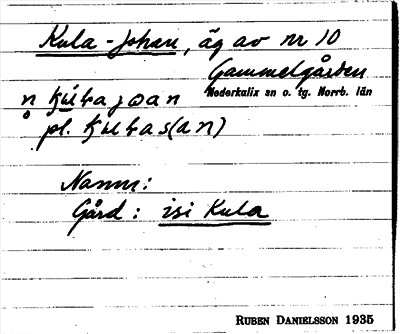 Kula-Johan, äg av nr 10
Gammelgården
Nederkalix sn o. tg. Norrb. län
pl.
Namn:
Gård: isi Kula
RUBEN DANIELSSON 1935